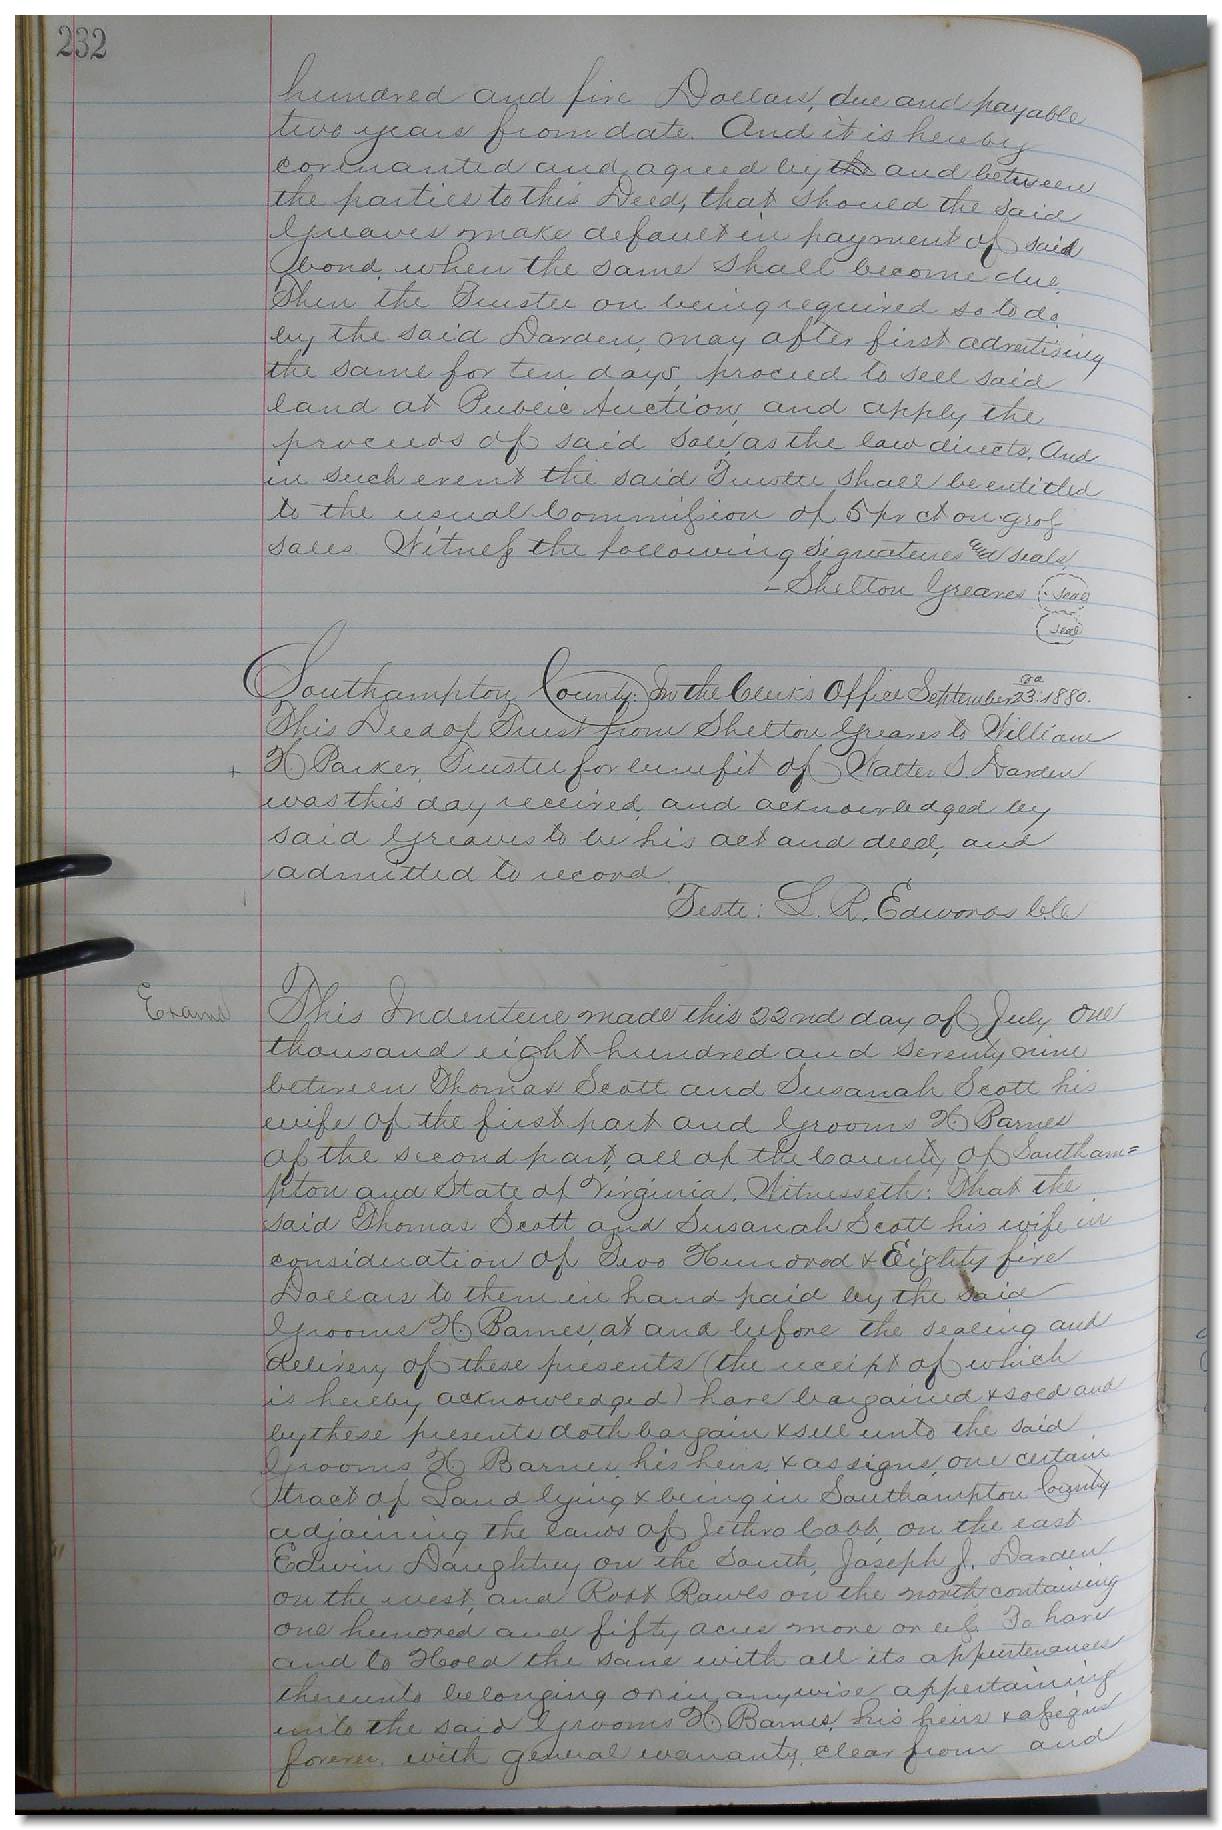 232
hundred and five Dollars, due and payable
two years from date. And it is hereby
covenanted and agreed by the and between
the parties to this Deed, that should the said
Greaves make default in payment of said
bond, when the same shall become due.
Then the Trustee on being required so to do
by the said Darden, may after first advertising
the same for ten days, proceed to sell said
land at Public Auction, and apply the
proceeds of said sale, as the law directs. And
in such event the said Trustee shall be entitled
to the usual Commission of 5 pr ct on gross
sales. Witness the following signatures and seals.
Shelton Greaves (seal)
(seal)
Southampton County: In the Clerk's Office September 23rd 1880.
This Deed of Trust from Shelton Greaves to William
H Parker, Trustee for benefit of Walter S Darden
was this day received, and acknowledged by
said Greaves to be his act and deed, and
admitted to record.
Teste: L. R. Edwards Clk
Examd
This Indenture made this 22nd day of July One
thousand eight hundred and seventy nine
between Thomas Scott and Susanah Scott his
wife of the first part and Grooms H Barnes
of the second part, all of the County of Southam=
pton and State of Virginia. Witnesseth: That the
said Thomas Scott and Susanah Scott his wife in
consideration of Two Hundred & Eighty five
Dollars to them in hand paid by the said
Grooms H. Barnes, at and before the sealing and
delivery of these presents (the receipt of which
is hereby acknowledged) have bargained & sold and
by these presents doth bargain & sell unto the said
Grooms H Barnes, his heirs & assigns, one certain
tract of Land lying & being in Southampton County
adjoining the lands of Jethro Cobb, on the east
Edwin Daughtrey on the South, Joseph J. Darden
on the west, and Robt Rawls on the north, containing
one hundred and fifty acres more or less. To have
and to Hold the same with all its appurtenances
thereunto belonging or in anywise appertaining
unto the said Grooms H Barnes, his heirs & assigns
forever, with general warranty, clear from and